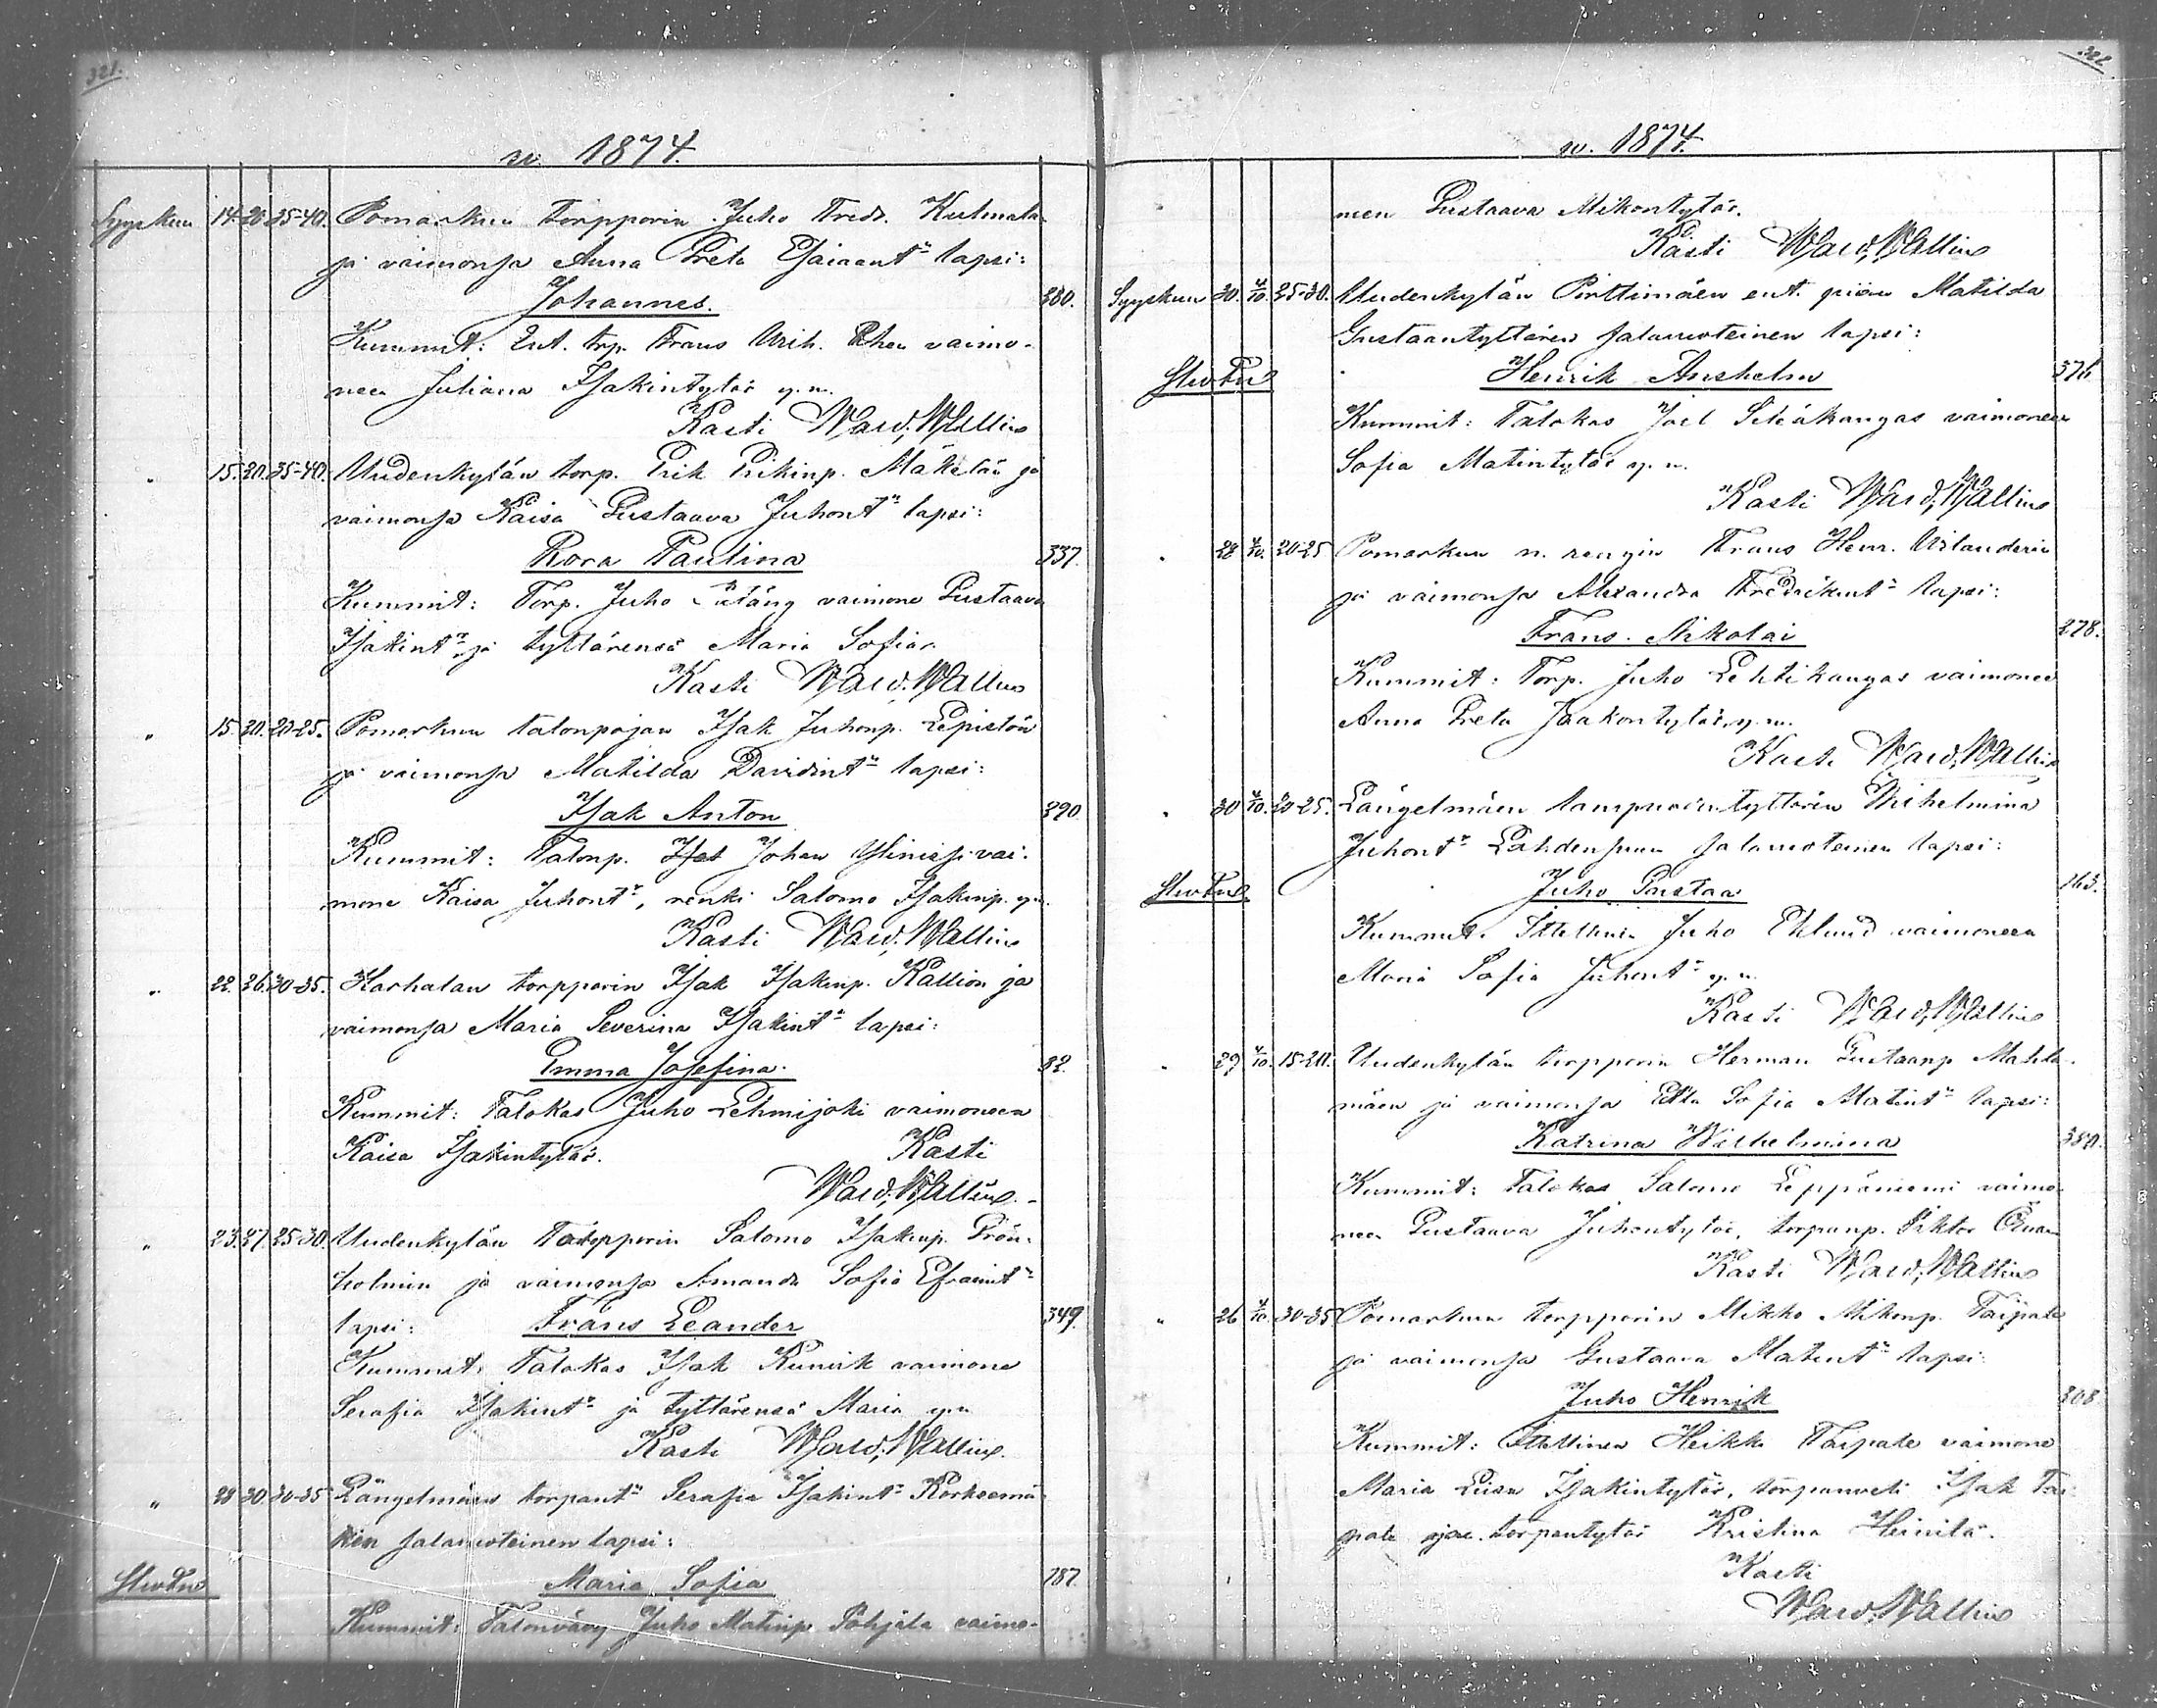 321.
w. 1874.
Syyskuu 14. 20. 35-40. Pomarkun torpparin Juho Fredr. Kulmala
ja vaimonsa Anna Greta Esaiaant:r lapsi:
Johannes. 380.
Kummit: Ent. trp. Frans Wilh. vaimo-
neen Juliana Isakintytär y. m.
Kasti Wald. Wallin
" 15. 20. 35-40. Uudenkylän torp. Erik Erikinp. Mäkelän ja
vaimonsa Kaisa Gustaava Juhont:r lapsi:
Rosa Paulina 337.
Kummit: Torp. Juho vaimone Gustaava
Isakint:r ja tyttärensä Maria Sofia.
Kasti Wald. Wallin
" 15. 20. 20-25. Pomarkun talonpojan Isak Juhonp. Lepistön
ja vaimonsa Matilda Davidint:r lapsi:
Isak Anton 290.
Kummit: Talonp. Johan vai-
mone Kaisa Juhont:r, renki Salomo Isakinp. y.m.
Kasti Wald. Wallin
" 22. 26. 30-35. Harhalan torpparin Isak Isakinp. Kallion ja
vaimonsa Maria Severina Isakint:r lapsi:
Emma Josefina. 82.
Kummit: Talokas Juho Lehmijoki vaimoneen
Kaisa Isakintytär. Kasti
Wald. Wallin
" 23. 27. 25-30. Uudenkylän torpparin Salomo Isakinp. Grön-
holmin ja vaimonsa Amanda Sofia Efraimt:r
lapsi: Frans Leander 349.
Kummit: Talokas Isak vaimone
Serafia Isakint:r ja tyttärensä Maria y.m
Kasti Wald. Wallin
" 28. 30. 30-35 Längelmäen torpant:r Serafia Isakint:r Korkeemä-
en salavuoteinen lapsi:
Maria Sofia 187.
Kummit: Talonväry Juho Matinp. Pohjala vaimo-
322
w. 1874.
neen Gustaava Mikontytär.
Kasti Wald. Wallin
Syyskuu 30. 4/10. 25-30. Uudenkylän Pirttimäen ent. piian Matilda
Gustaantyttären salavuoteinen lapsi:
Henrik Anshelm 376
Kummit: Talokas Joel vaimoneen
Sofia Matintytär y. m.
Kasti Wald. Wallin
" 28 4/10. 20-25 Pomarkun n. rengin Frans Henr.
ja vaimonsa Alexandra Fredrikint:r lapsi:
Frans Nikolai 278.
Kummit: Torp. Juho Lehtikangas vaimoneen
Anna Greta Jaakontytär, y. m.
Kasti Wald. Wallin
" 30 4/10. 20-25. Längelmäen lampuodintyttären Wilhelmina
Juhont:r Lahdensuun salavuoteinen lapsi:
Juho Gustaa 163.
Kummit: Itellinen Juho Eklund vaimoneen
Maria Sofia Juhont:r y. m.
Kasti Wald. Wallin
" 29 4/10. 15-20. Uudenkylän torpparin Herman Gustaanp.
mäen ja vaimonsa Sofia Matint:r lapsi:
Katrina Wilhelmina 380.
Kummit: Talokas Salomo Leppäniemi vaimo-
neen Gustaava Juhontytär, torpanp.
Kasti Wald. Wallin
" 26 4/10. 30-35 Pomarkun torpparin Mikko Mikonp. Taipale
ja vaimonsa Gustaava Matint:r lapsi:
Juho Henrik 308.
Kummit: Itellinen Heikki Taipale vaimone
Maria Liisa Isakintytär, torpanveli Isak Tai-
pale torpantytär Kristina Heinilä.
Kasti
Wald. Wallin